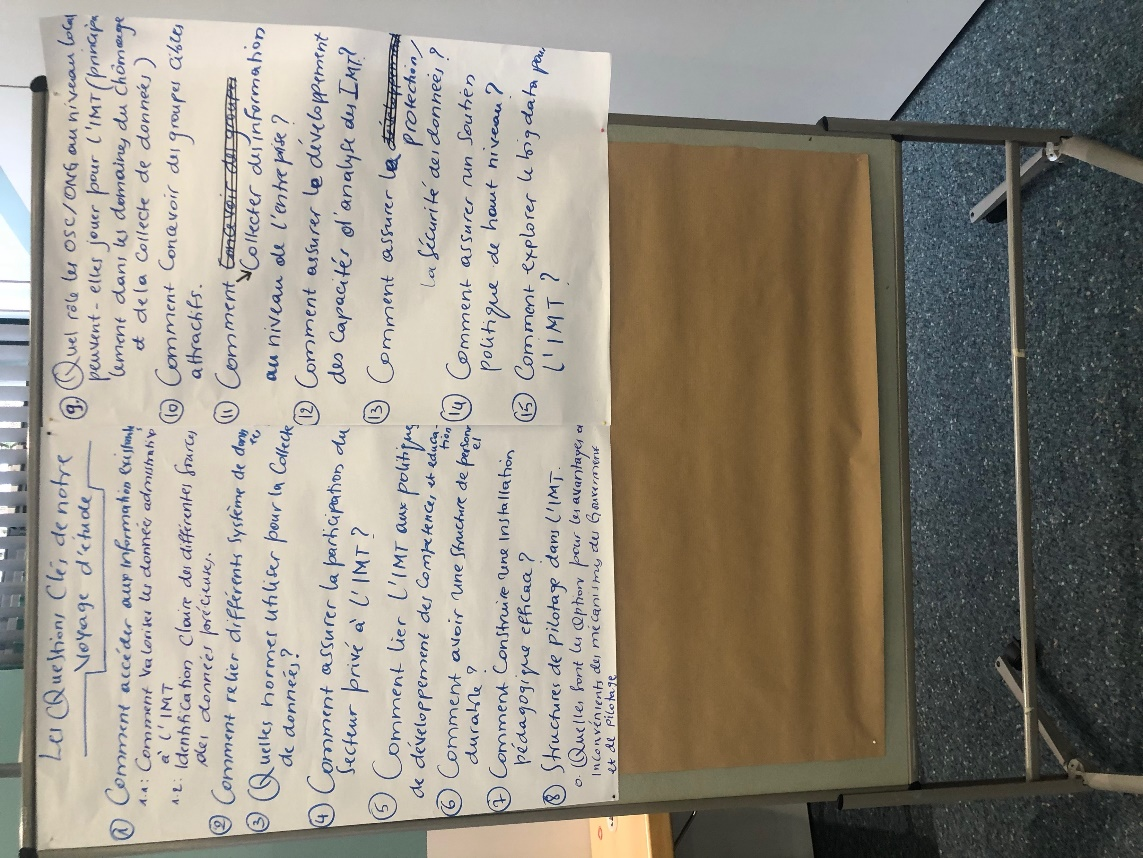 Les Questions Clés de notre
voyage d'étude
1 Comment accéder aux information existants
1.1: Comment valoriser les données administrativ
à l'IMT
1.2: Identification Claire des différentes sources
des données précieuses.
2 Comment relier différents système de données
3 Quelles normes utiliser pour la Collecte
de données?
4 Comment assurer la participation du
Secteur privé à l'IMT?
5 Comment lier l'IMT aux politiques
de développement des Competences et education
6 Comment avoir une structure de personnel
durable?
7 Comment Construire une installation
pédagogique efficace?
8 Structures de Pilotage dans l'IMT.
o. Quelles sont les Option pour les avantages et
Inconvénients des mécanismes des Gouvernement
et de Pilotage
9. Quel rôle les OSC/ONG au niveau local
peuvent-elles jouer pour l'IMT (principa
lement dans les domaines du chômage
et de la collecte de données)
10 Comment Concevoir des groupes cibles
attractifs.
11 Comment
Collecter des information
au niveau de l'entreprise?
12 Comment assurer le développement
des Capacités d'analyse du IMT?
13 Comment assurer la
protection/
la sécurité des données?
14 Comment assurer un soutien
politique de haut niveau?
15 Comment explorer le big data pour
l'IMT?